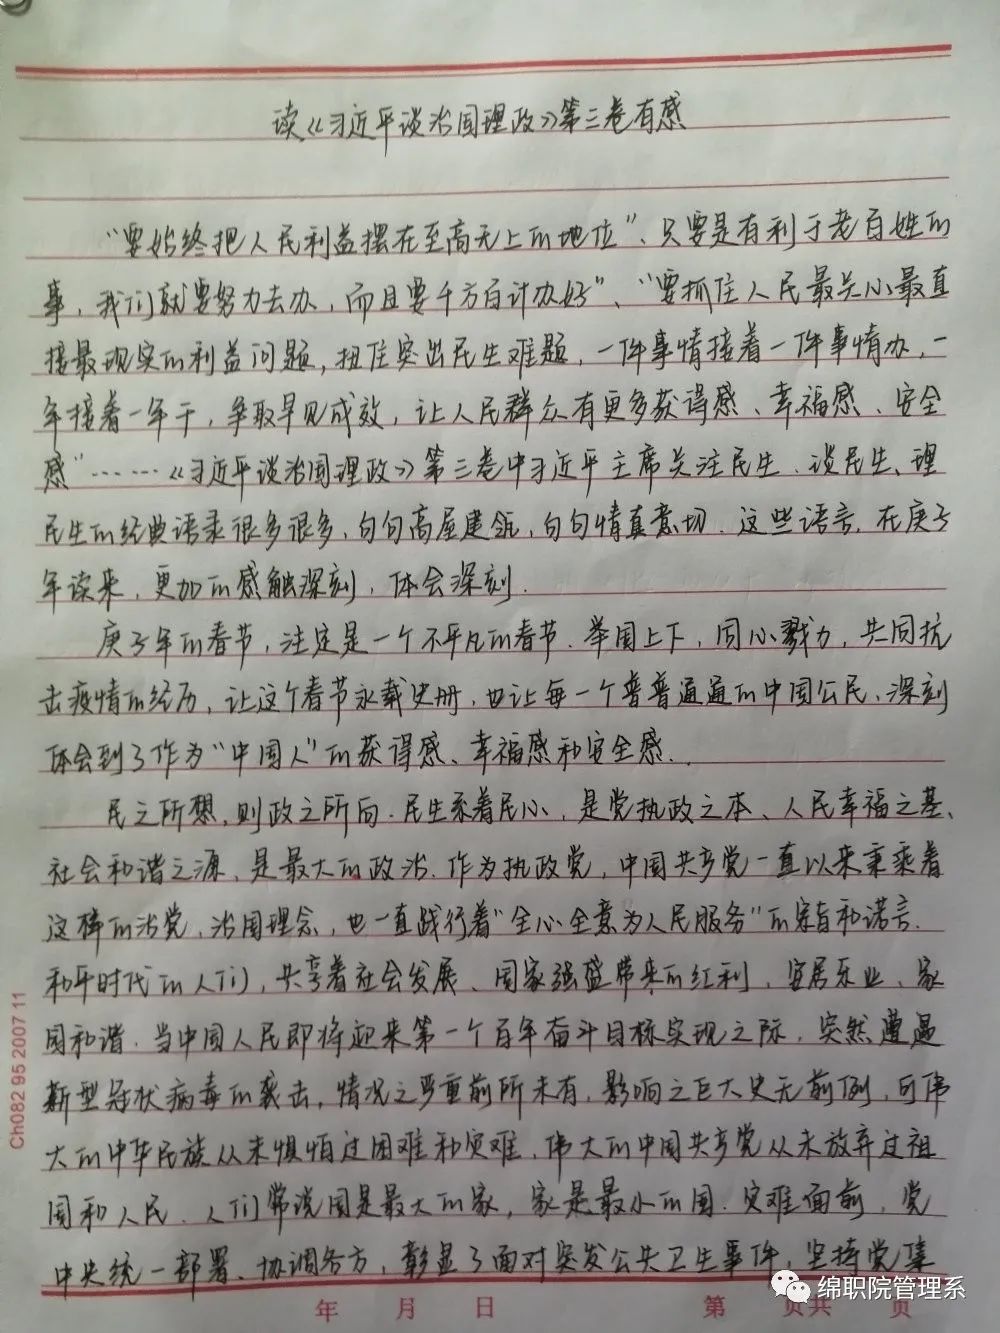 读《习近平谈治国理政》第三卷有感
“要始终把人民利益摆在至高无上的地位”、只要是有利于老百姓的
事，我们就要努力去办，而且要千方百计办好”、“要抓住人民最关心最直
接最现实的利益问题，扭住突出民生难题，一件事情接着一件事情办，一
年接着一年干，争取早见成效，让人民群众有更多获得感、幸福感、安全
感”……《习近平谈治国理政》第三卷中习近平主席关注民生、谈民生、理
民生的经典语录很多很多，句句高屋建瓴，句句情真意切．这些语言，在庚子
年读来，更加的感触深刻，体会深刻．
庚子年的春节，注定是一个不平凡的春节．举国上下，同心戮力，共同抗
击疫情的经历，让这个春节永载史册，也让每一个普普通通的中国公民，深刻
体会到了作为“中国人”的获得感、幸福感和安全感．．
民之所想，则政之所向．民生系着民心，是党执政之本、人民幸福之基、
社会和谐之源，是最大的政治．作为执政党，中国共产党一直以来秉乘着
这样的治党，治国理念，也一直践行着“全心全意为人民服务”的宗旨和诺言．
和平时代的人们，共享着社会发展、国家强盛带来的红利，安居乐业、家
国和谐．当中国人民即将迎来第一个百年奋斗目标实现之际，突然遭遇
新型冠状病毒的袭击，情况之严重前所未有，影响之巨大史无前例，可伟
大的中华民族从未惧怕过困难和灾难，伟大的中国共产党从未放弃过祖
国和人民．人们常说国是最大的家，家是最小的国．灾难面前，党
中央统一部署、协调各方，彰显了面对突发公共卫生事件，坚持党集
年 月 日 第 页共 页
Ch082 95 2007 11
绵职院管理系